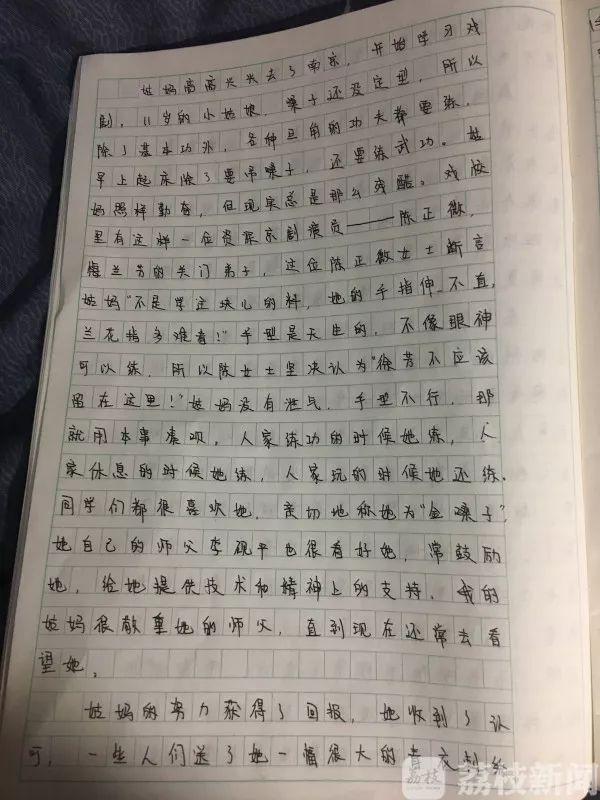 姑妈高高兴兴去了南京，开始学习戏
剧，11岁的小姑娘，嗓子还没定型，所以
除了基本功外，各种旦角的功夫都要练，
早上起床除了要吊嗓子，还要练武功。姑
妈照样勤奋，但现实总是那么残酷。戏校
里有这样一位资深京剧演员——陈正薇，
梅兰芳的关门弟子，这位陈正薇女士断言
姑妈“不是学这块儿的料，她的手指伸不直，
兰花指多难看！”手型是天生的，不像眼神
可以练，所以陈女士坚决认为“徐芳不应该
留在这里！”姑妈没有泄气，手型不行，那
就用本事凑呗，人家练功的时候她练，人
家休息的时候她练，人家玩的时候她还练。
同学们都很喜欢她，亲切地称她为“金嗓子”，
她自己的师父李砚萍也很看好她，常鼓励
她，给她提供技术和精神上的支持。我的
姑妈很敬重她的师父，直到现在还常去看
望她。
姑妈的努力获得了回报，她收到了认
可，一些人们送了她一幅很大的青衣
荔枝
荔枝新闻